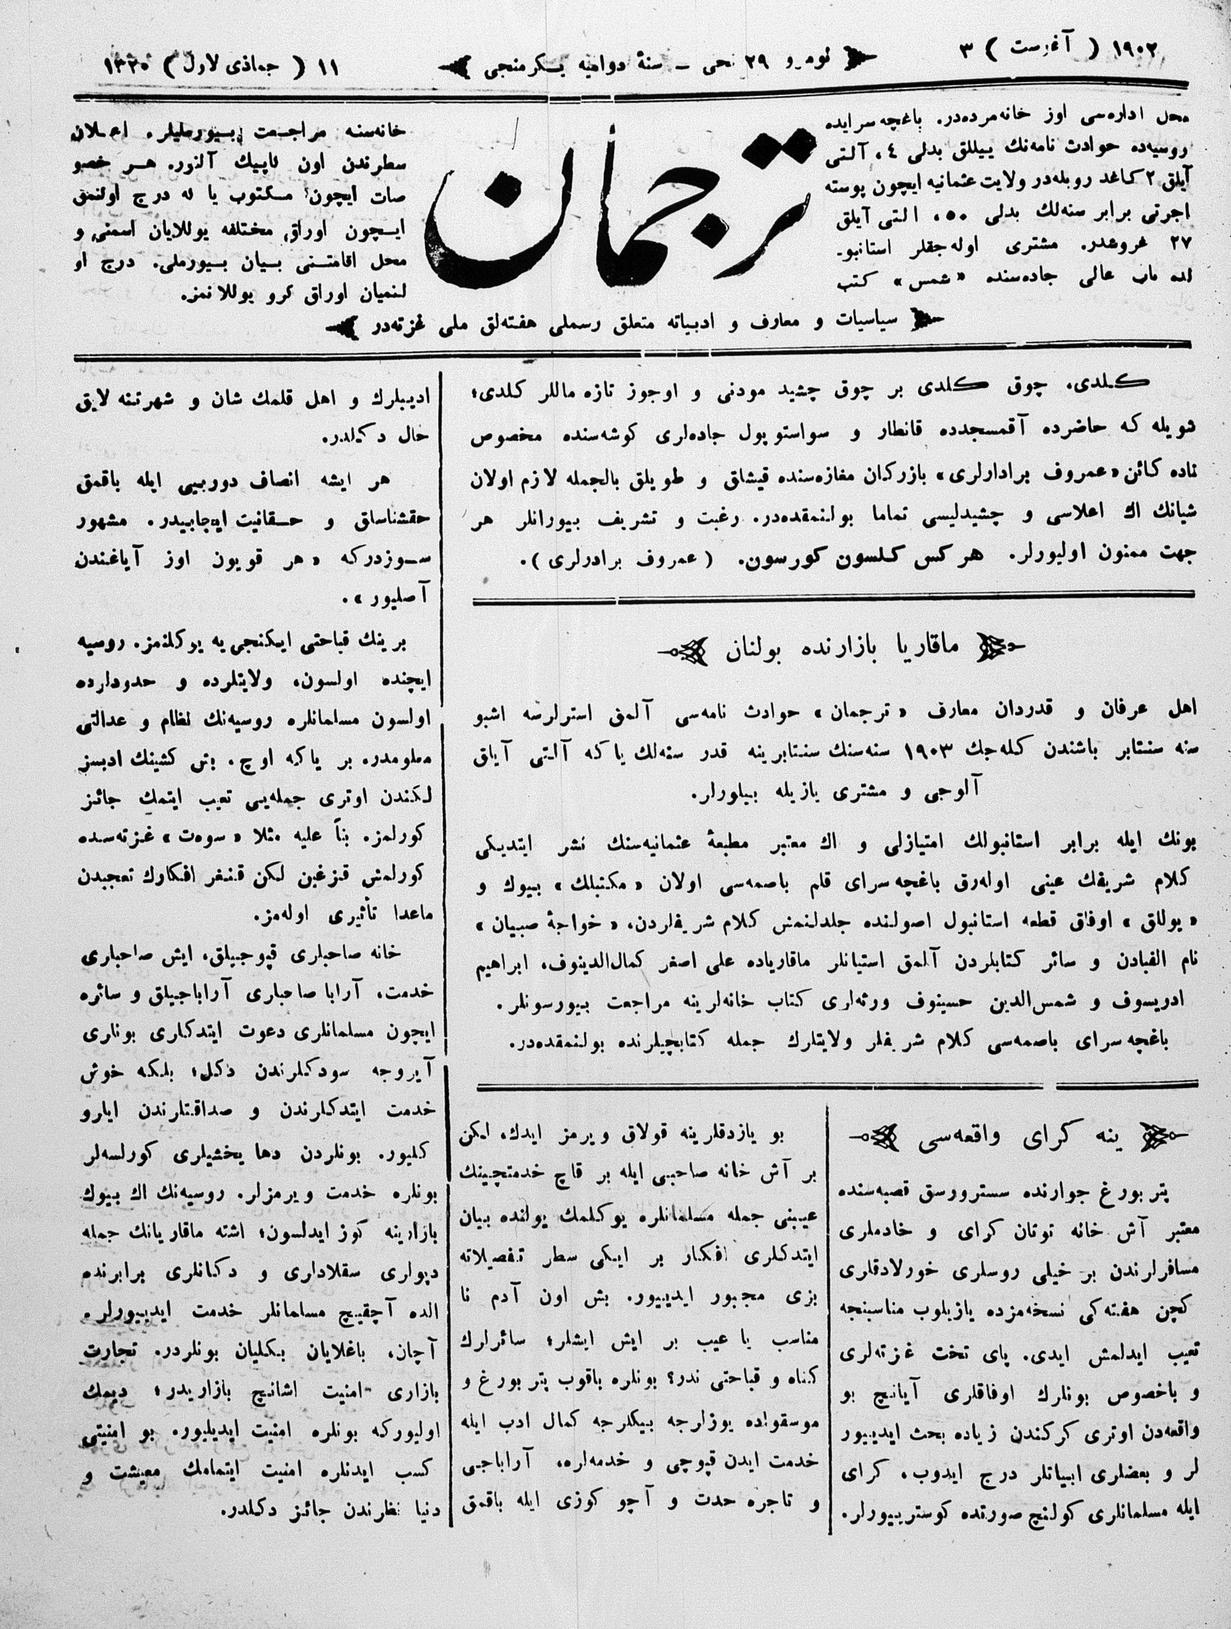 ١٩٠٢ ( آغوست ) ٣
نومرو ٢٩ نجی ـ سنهٔ دوامیه یگرمنجی
١١ ( جماذی لاول ) ١٣٢٠
محل اداره‌سی اوز خانه‌مزده‌در. باغچه سرایده
روسیه‌ده حوادث نامه‌نك ییللق بدلی ٤، آلتی
آیلق ٢ كاغد روبله‌در ولایت عثمانیه ایچون پوسته
اجرتی برابر سنه‌لك بدلی ٥٠، التی آیلق
٢٧ غروشدر. مشتری اوله‌جقلر استانبو‌ـ
لده باب عالی جاده‌سنده «شمس» كتب
ترجمان
خانه‌سنه مراجعت بیورملیلر. اعلان
سطرندن اون قاپیك آلنور. هر خصو
صات ایچون مكتوب یا له درج اولنمق
ایچون اوراق مختلفه یوللایان اسمنی و
محل اقامتنی بیان بیورملی. درج او
لنمیان اوراق گرو یوللانمز.
سیاسیات و معارف و ادبیاته متعلق رسملی هفته‌لق ملی غزته‌در
گلدی، چوق گلدی بر چوق چشید مودنی و اوجوز تازه ماللر گلدی؛
شویله كه حاضرده آقمسجدده قانطار و سواستوپول جاده‌لری گوشه‌سنده مخصوص
بناده كائن «عمروف برادارلری» بازرگان مغازه‌سنده قیشلق و طویلق بالجمله لازم اولان
شیانك اك اعلاسی و چشیدلیسی تماما بولنمقده‌در. رغبت و تشریف بیورانلر هر
جهت ممنون اولیورلر. هركس گلسون گورسون. (عمروف برادرلری).
ماقاریا بازارنده بولنان
اهل عرفان و قدردان معارف «ترجمان» حوادث نامه‌سی آلمق استرلرسه اشبو
سنه سنتابر باشندن گله‌جك ١٩٠٣ سنه‌سنك سنتابرینه قدر سنه‌لك یاكه آلتی آیلق
آلوجی و مشتری یازیله بیلورلر.
بونك ایله برابر استانبولك امتیازلی و اك معتبر مطبعهٔ عثمانیه‌سنك نشر ایتدیكی
كلام شریفك عینی اوله‌رق باغچه سرای قلم باصمه‌سی اولان «مكتبلك» بیوك و
«یوللق» اوفاق قطعه استانبول اصولنده جلدلنمش كلام شریفلردن، «خواجهٔ صبیان»
نام الفبادن و سائر كتابلردن آلمق استیانلر ماقاریاده علی اصغر كمال‌الدینوف، ابراهیم
ادریسوف و شمس‌الدین حسینوف ورثه‌لری كتاب خانه‌لرینه مراجعت بیورسونلر.
باغچه سرای باصمه‌سی كلام شریفلر ولایتلرك جمله كتابچیلرنده بولنمقده‌در.
ینه گرای واقعه‌سی
پتربورغ جوارنده سسترورسق قصبه‌سنده
معتبر آش خانه توتان گرای و خادملری
مسافرلرندن بر خیلی روسلری خورلادقلری
گچن هفته‌كی نسخه‌مزده یازیلوب مناسبنجه
تعیب ایدلمش ایدی. پای تخت غزته‌لری
و باخصوص بونلرك اوفاقلری آیانیچ بو
واقعه‌دن اوتری گرگندن زیاده بحث ایدییور
لر و بعضلری ابیاتلر درج ایدوب، گرای
ایله مسلمانلری گولنچ صورتده گوسترییورلر.
بو یازدقلرینه قولاق ویرمز ایدك، لیكن
بر آش خانه صاحبی ایله بر قاچ خدمتچینك
عیبنی جمله مسلمانلره یوكلمك یولنده بیان
ایتدكلری افكار بر ایكی سطر تفصیلاته
بزی مجبور ایدییور. بش اون آدم نا
مناسب یا عیب بر ایش ایشلر؛ سائرلرك
گناه و قباحتی ندر؟ بونلره باقوب پتربورغ و
موسقواده یوزلرجه بیگلرجه كمال ادب ایله
خدمت ایدن قپوچی و خدمه‌لره، آراباجیی
و تاجره حدت و آچو گوزی ایله باقمق
ادیبلرك و اهل قلمك شان و شهرتنه لایق
حال دگلدر.
هر ایشه انصاف دوربینی ایله باقمق
حقشناسلق و حقانیت ایجابیدر. مشهور
سوزدركه «هر قویون اوز آیاغندن
آصلیور».
برینك قباحتی ایكنجی‌یه یوكلنمز. روسیه
ایچنده اولسون، ولایتلرده و حدودلرده
اولسون مسلمانلره روسیه‌نك نظام و عدالتی
معلومدر. بر یاكه اوچ. بش كشینك ادبسز
لگندن اوتری جمله‌یی تعیب ایتمك جائز
گورلمز. بناً علیه مثلا «سوه‌ت» غزته‌سنده
گورلمش قزغین لكن قنغر افكارك تعجبدن
ماعدا تأثیری اوله‌مز.
خانه صاحبلری قپوجیلق، ایش صاحبلری
خدمت، آرابا صاحبلری آراباجیلق و سائره
ایچون مسلمانلری دعوت ایتدكلری بونلری
آیروجه سودكلرندن دگل؛ بلكه خوش
خدمت ایتدكلرندن و صداقتلرندن ایلرو
گلیور. بونلردن دها یخشیلری گورلسه‌لر
بونلره خدمت ویرمزلر. روسیه‌نك اك بیوك
بازارینه گوز ایدلسون؛ اشته ماقاریانك جمله
دپولری سقلادلری و دكانلری برابرنده
الده آچقیچ مسلمانلر خدمت ایدییورلر.
آچان، باغلایان بكلیان بونلردر. تجارت
بازاری امنیت اشانیچ بازاریدر؛ دیمك
اولیوركه بونلره امنیت ایدیلیور. بو امنیتی
كسب ایدنلره امنیت ایتمامك معیشت و
دنیا نظرندن جائز دگلدر.